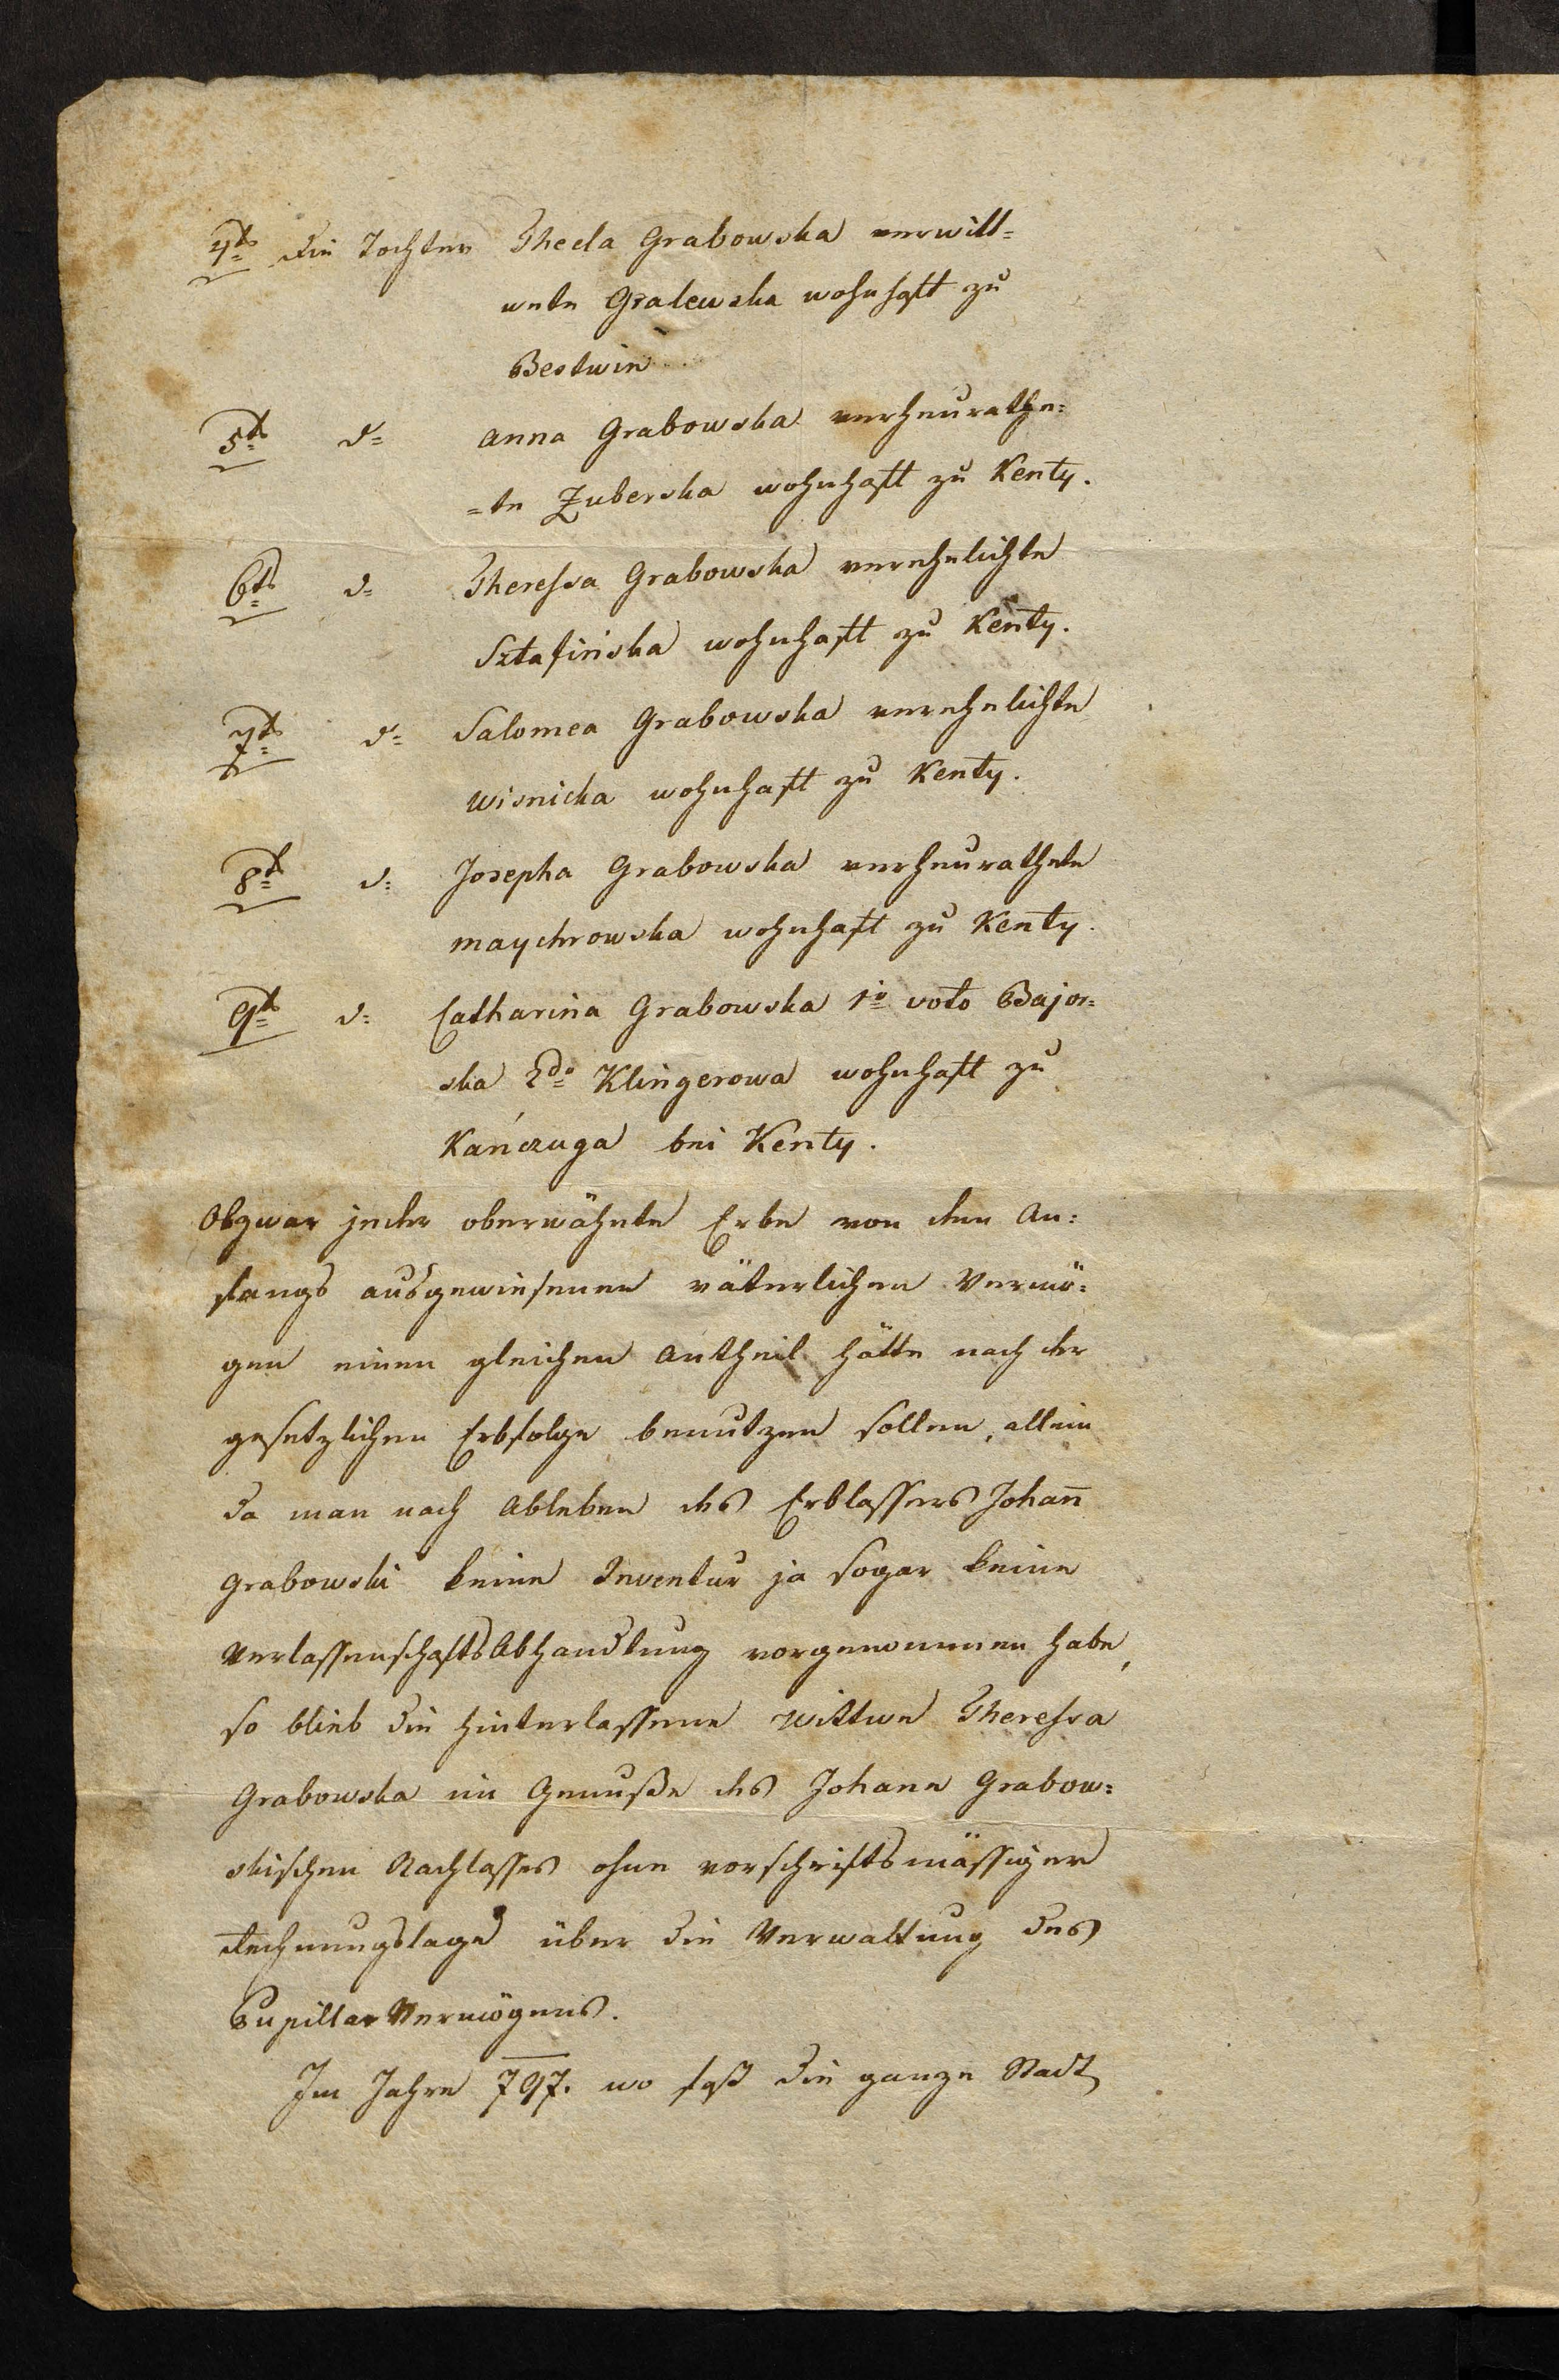 4tens die Tochter Thecla Grabowska verwitt=
wete Gralewska wohnhaft zu
Bestwin
5tens d= Anna Grabowska verheurathe=
=te Zuberska wohnhaft zu Kenty.
6tens d= Theressa Grabowska verehelichte
Sztafinska wohnhaft zu Kenty.
7tens d= Salomea Grabowska verehelichte
Wisnicka wohnhaft zu Kenty.
8tens d= Josepha Grabowska verheurathete
Maychrowska wohnhaft zu Kenty.
9tens d= Catharina Grabowska 1io voto Bajor=
ska 2do Klingerowa wohnhaft zu
Kańczuga bei Kenty.
Obzwar jeder oberwähnte Erbe von dem An=
fangs ausgewiesenen väterlichen Vermö=
gen einen gleichen Antheil hätte nach der
gesetzlichen Erbfolge benutzen sollen, allein
da man nach Ableben des Erblassers Johan̄
Grabowski keine Inventur ja sogar keine
VerlassenschaftsAbhandlung vorgenommen habe,
so blieb die hinterlassene Wittwe Theressa
Grabowska im Genuße des Johann Grabow=
skischen Nachlasses ohne vorschriftsmässiger
Rechnungslage über die Verwaltung des
Pupillar Vermögens.
Im Jahre 797. wo fast die ganze Stadt